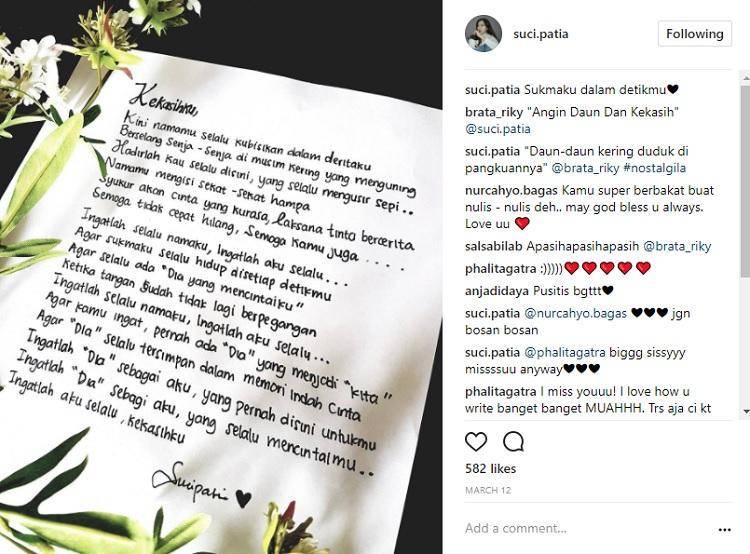 Kekasihku,
Kini namamu selalu kubisikan dalam deritaku
Berselang Senja - Senja di musim kering yang menguning
Hadirlah kau selalu disini, yang selalu mengusir sepi..
Namamu mengisi sekat - sekat hampa
Syukur akan cinta yang kurasa, laksana tinta bercerita
Semoga tidak cepat hilang, Semoga kamu juga ....
Ingatlah selalu namaku, Ingatlah aku selalu...
Agar sukmaku selalu hidup disetiap detikmu
Agar selalu ada "Dia yang mencintaiku"
Ketika tangan sudah tidak lagi berpegangan
Ingatlah selalu namaku, Ingatlah aku selalu...
Agar kamu ingat, pernah ada "Dia" yang menjadi "kita"
Agar "Dia" selalu tersimpan dalam memori indah Cinta
Ingatlah "Dia" sebagai aku, yang pernah disini untukmu
Ingatlah "Dia" sebagi aku, yang selalu mencintaimu..
Ingatlah aku selalu, kekasihku
Sucipati ♥
suci.patia
Following
suci.patia Sukmaku dalam detikmu🖤
brata_riky "Angin Daun Dan Kekasih"
@suci.patia
suci.patia "Daun-daun kering duduk di
pangkuannya" @brata_riky #nostalgila
nurcahyo.bagas Kamu super berbakat buat
nulis - nulis deh.. may god bless u always.
Love uu ❤
salsabilab Apasihapasihapasih @brata_riky
phalitagatra :)))))❤❤❤❤❤
anjadidaya Pusitis bgttt🖤
suci.patia @nurcahyo.bagas 🖤🖤🖤 jgn
bosan bosan
suci.patia @phalitagatra biggg sissyyy
misssssuu anyway🖤🖤🖤
phalitagatra I miss youuu! I love how u
write banget banget MUAHHH. Trs aja ci kt
582 likes
MARCH 12
Add a comment...